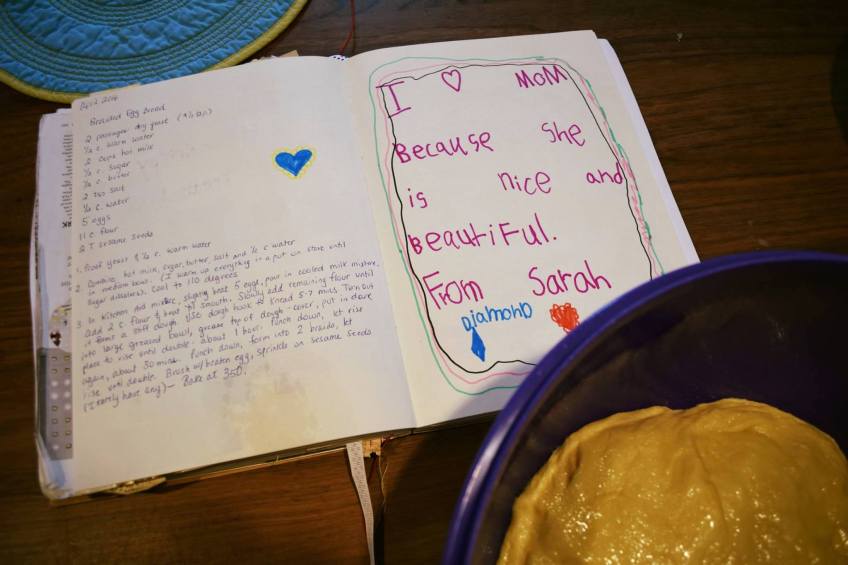 April 2014
Braided Egg Bread
2 packages dry yeast (4½ tsn)
½ c. warm water
2 cups hot milk
½ c. sugar
½ c. butter
2 tsp salt
½ c. water
5 eggs
11 c flour
2 T sesame seeds
1. Proof yeast & ½ c. warm water
2. Combine hot milk, sugar, butter, salt and ½ c water
in medium bowl. (I warm up everything in a pot on stove until
sugar dissolves). Cool to 110 degrees
3. In Kitchen Aid mixture, slightly beat 5 eggs, pour in cooled milk mixture.
Add 2 c. flour & beat 'til smooth. Slowly add remaining flour until
it forms a soft dough. Use dough hook to knead 5-7 mins. Turn out
into large greased bowl, grease top of dough - cover, put in store
place to rise until double - about 1 hour. Punch down, let rise
again, about 30 mins. Punch down, form into 2 braids, let
rise until double. Brush w/beaten egg, sprinkle on sesame seeds
(I rarely have any) - Bake at 350.
I MOM
Because she
is nice and
Beautiful.
From Sarah
Diamond